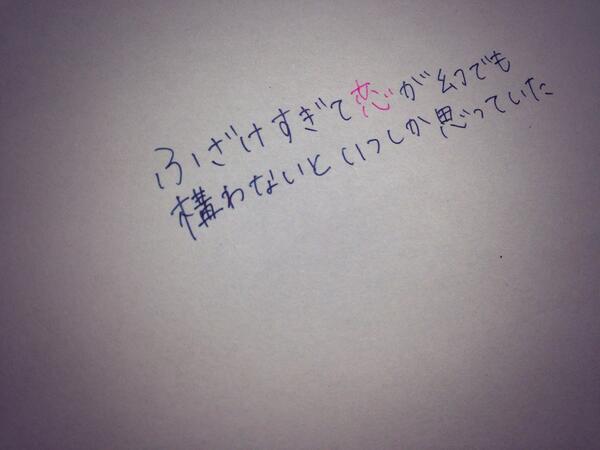 ふざけすぎて恋が幻でも
構わないといつしか思っていた